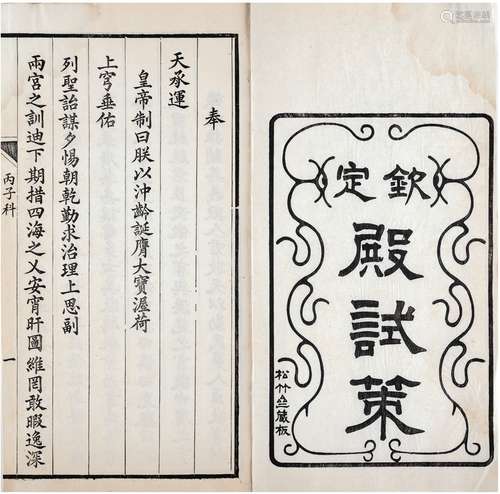 欽定
殿試策
松竹亝藏板
奉
天承運
皇帝制曰朕以沖齡誕膺大寶渥荷
上穹垂佑
列聖詒謀夕惕朝乾勤求治理上思副
兩宮之訓迪下期措四海之乂安宵旰圖維罔敢暇逸深
丙子科
一